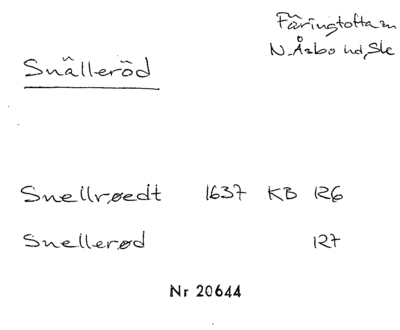 Färingtofta sn
N. Åsbo hd, Sk
Snälleröd
Snellrøedt 1637 KB 126
Snellerød 127
Nr 20644